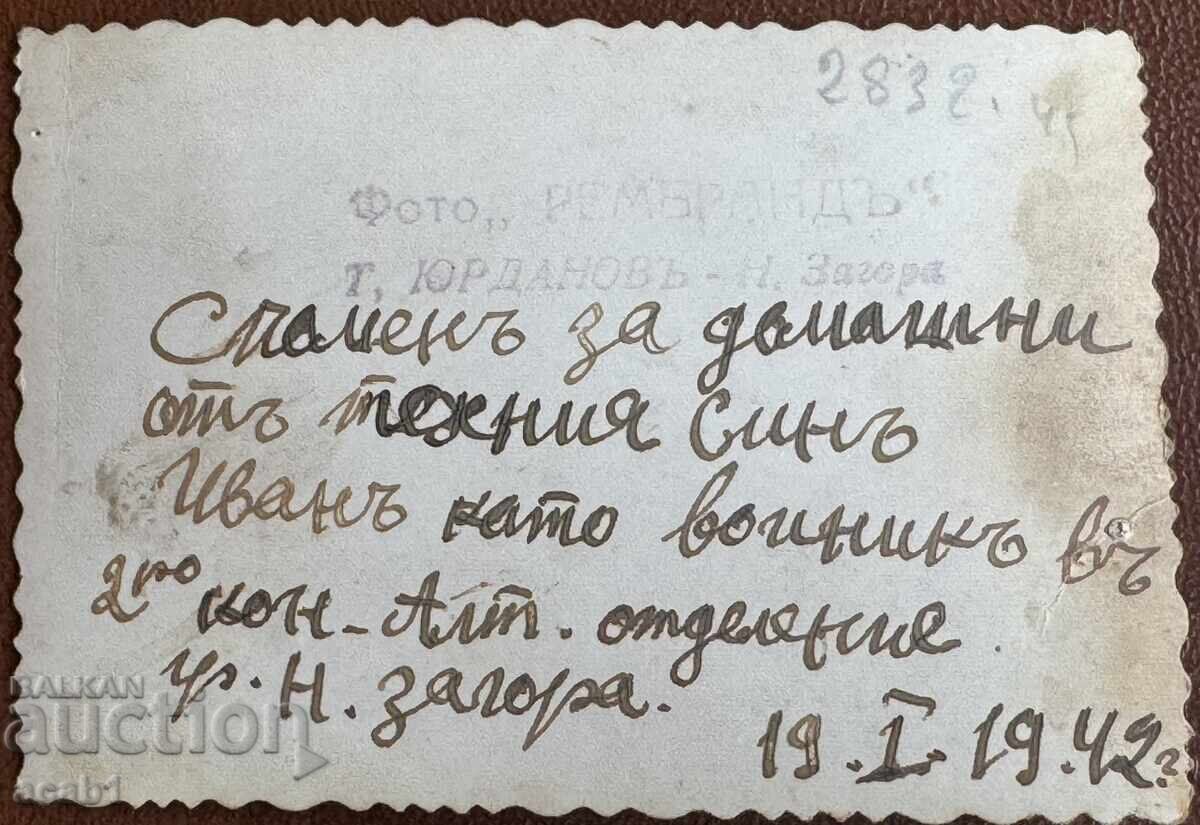 2832.
Фото „РЕМБРАНДЪ“
Т, ЮРДАНОВЪ - Н. Загора
Споменъ за домашни
отъ техния Синъ
Иванъ като воиникъ въ
2ро кон - Алт. отделение
гр. Н. загора.
19. I. 19.42г
BALKAN
auction
acab1